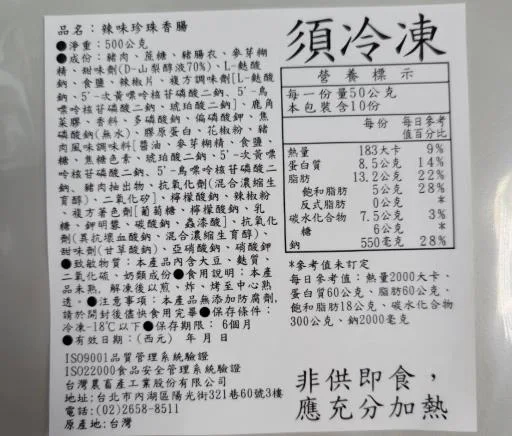 品名：辣味珍珠香腸
●淨重：500公克
●成份：豬肉、蔗糖、豬腸衣、麥芽糊
精、甜味劑(D-山梨醇液70%)、L-麩酸
鈉、食鹽、辣椒片、複方調味劑[L-麩酸
鈉、5'-次黃嘌呤核苷磷酸二鈉、5'-鳥
嘌呤核苷磷酸二鈉、琥珀酸二鈉]、鹿角
菜膠、香料、多磷酸鈉、偏磷酸鉀、焦
磷酸鈉(無水)、膠原蛋白、花椒粉、豬
肉風味調味料[醬油、麥芽糊精、食鹽、
糖、焦糖色素、琥珀酸二鈉、5'-次黃嘌
呤核苷磷酸二鈉、5'-鳥嘌呤核苷磷酸二
鈉、豬肉抽出物、抗氧化劑(混合濃縮生
育醇)、二氧化矽]、檸檬酸鈉、辣椒粉、
複方著色劑[葡萄糖、檸檬酸鈉、乳
糖、鉀明礬、碳酸鈉、蟲漆酸]、抗氧化
劑(異抗壞血酸鈉、混合濃縮生育醇)、
甜味劑(甘草酸鈉)、亞硝酸鈉、硝酸鉀
●致敏物質：本產品內含大豆、麩質、
二氧化硫、奶類成份●食用說明：本產
品未熟，解凍後以煎、炸、烤至中心熟
透。●注意事項：本產品無添加防腐劑，
請於開封後儘快食用完畢●保存條件：
冷凍-18℃以下●保存期限：6個月
●有效日期：(西元) 年 月 日
ISO9001品質管理系統驗證
ISO22000食品安全管理系統驗證
台灣農畜產工業股份有限公司
地址:台北市內湖區陽光街321巷60號3樓
電話:(02)2658-8511
原產地:台灣
須冷凍
營養標示
每一份量50公克
本包裝含10份
每份 每日參考值百分比
熱量 183大卡 9%
蛋白質 8.5公克 14%
脂肪 13.2公克 22%
飽和脂肪 5公克 28%
反式脂肪 0公克 *
碳水化合物 7.5公克 3%
糖 6公克 *
鈉 550毫克 28%
*參考值未訂定
每日參考值：熱量2000大卡、
蛋白質60公克、脂肪60公克、
飽和脂肪18公克、碳水化合物
300公克、鈉2000毫克
非供即食，
應充分加熱